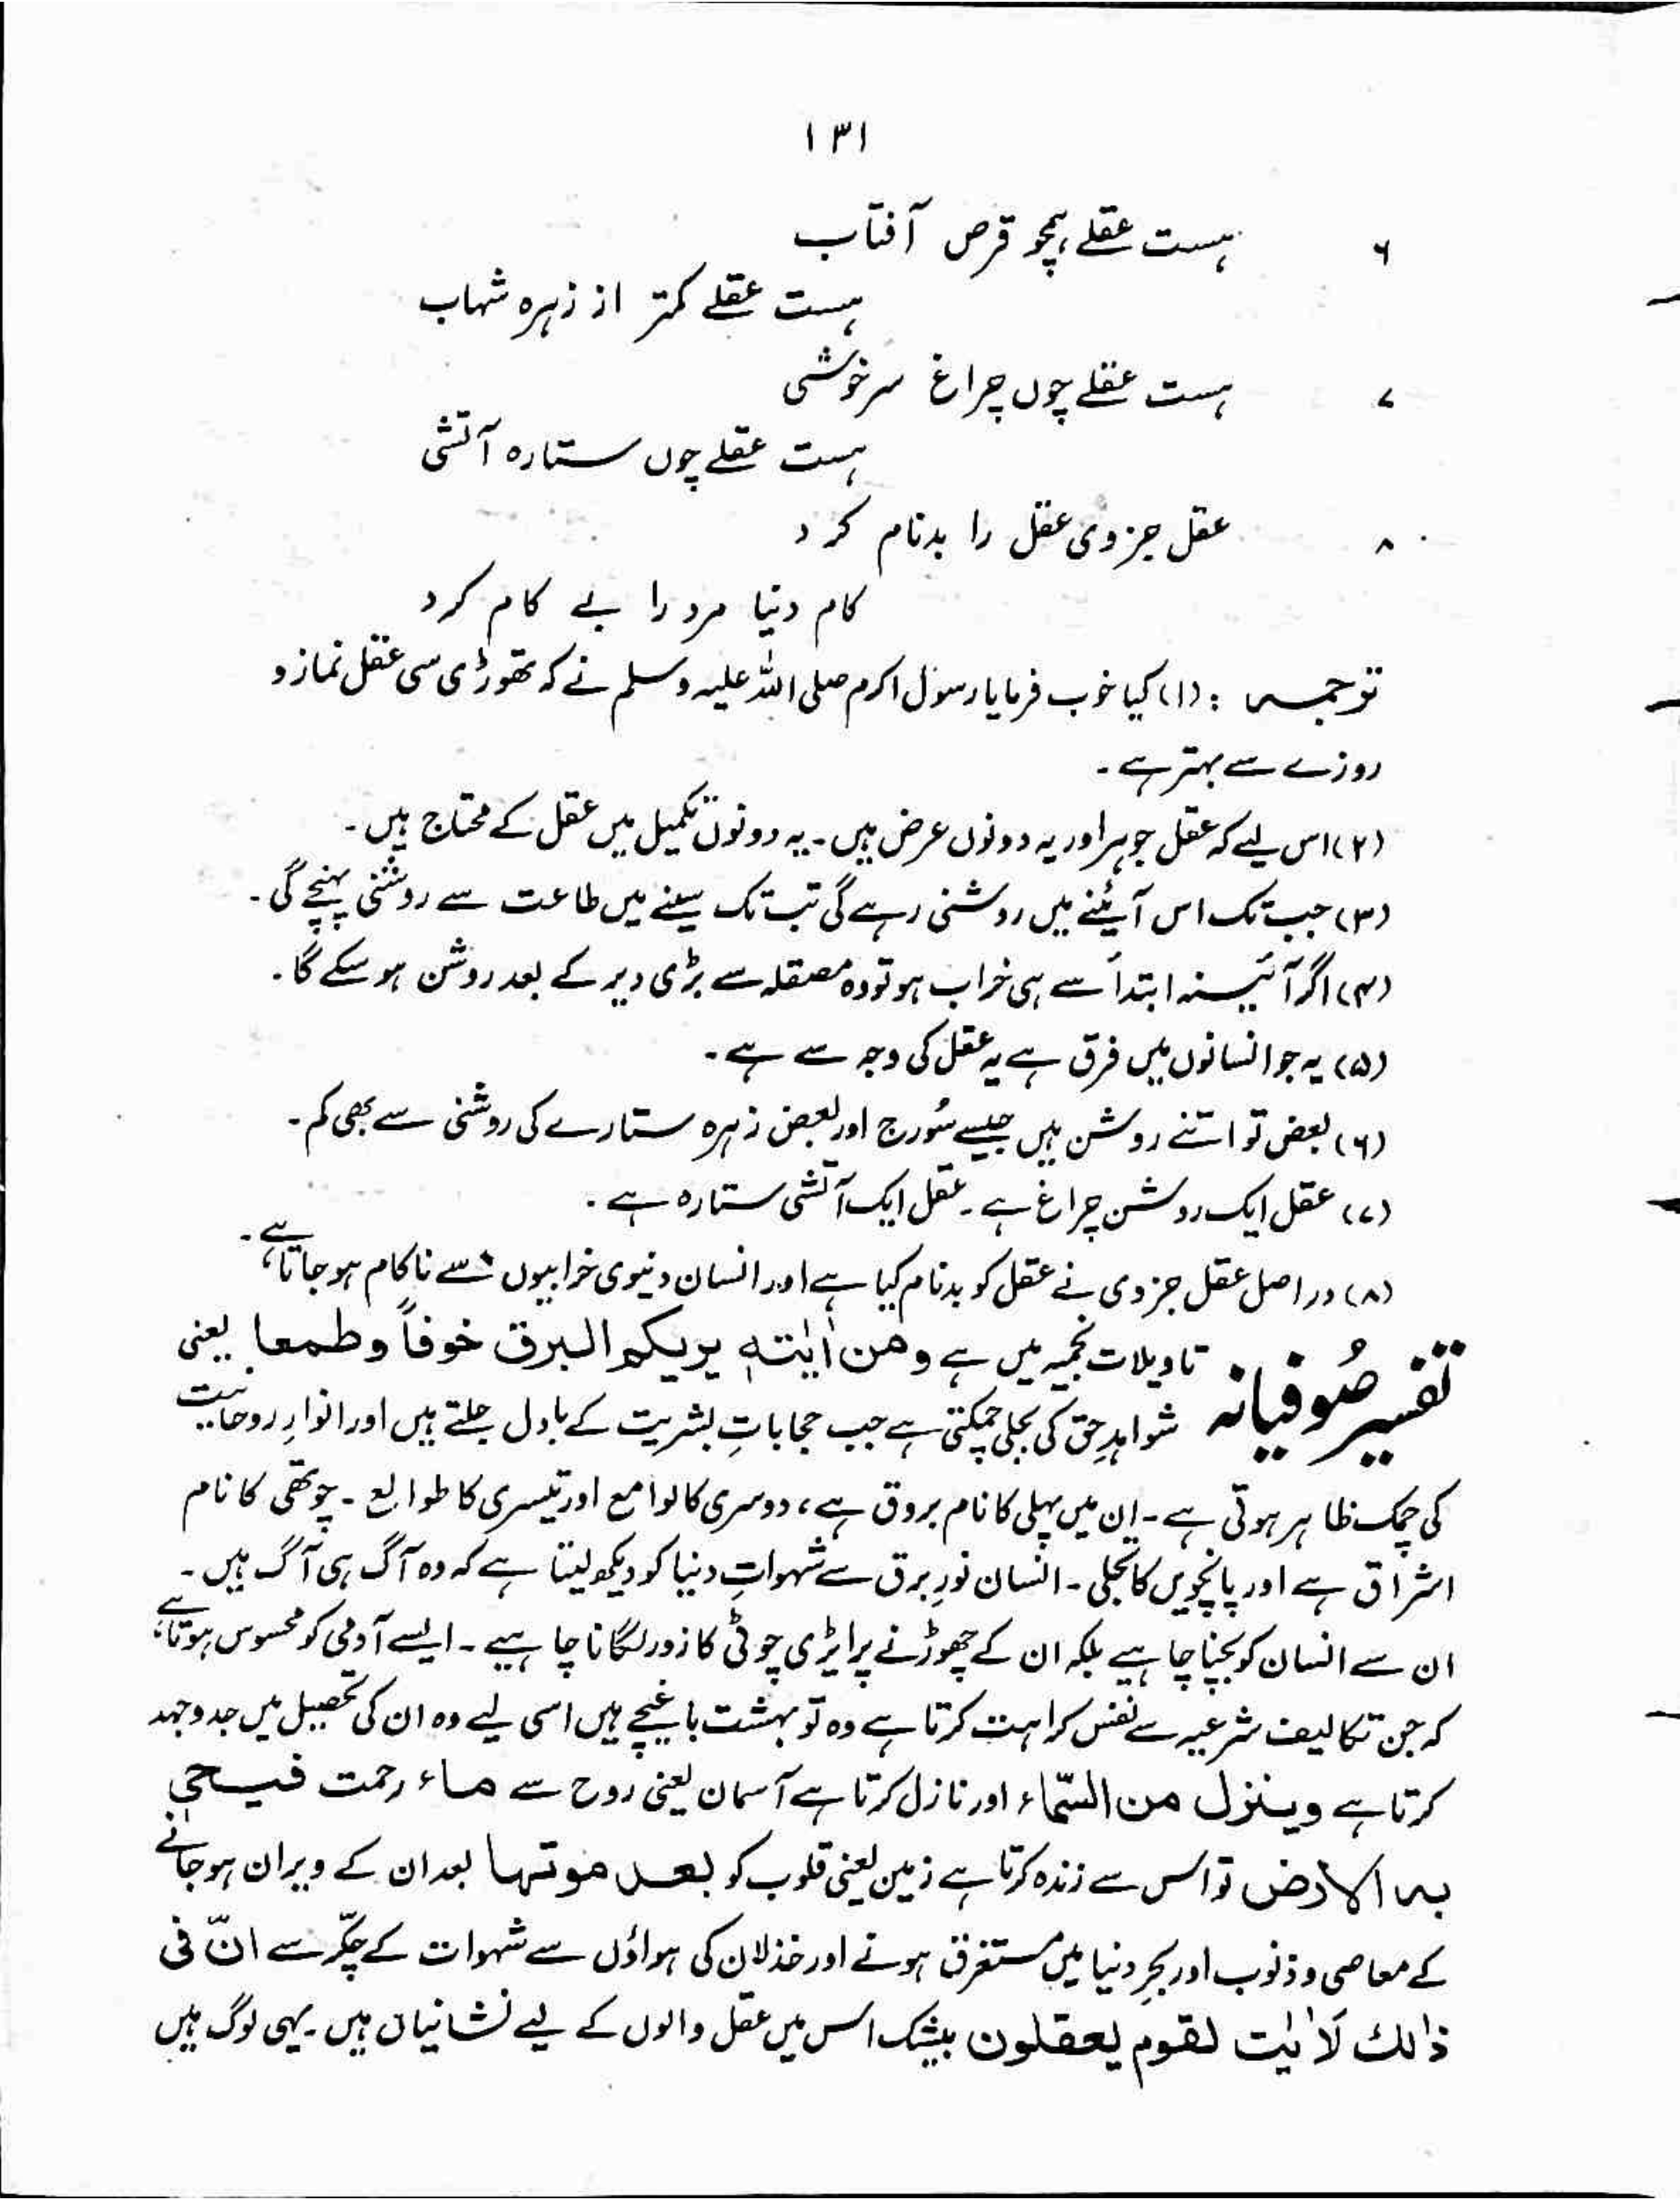 ۱۳۱
۶ ہست عقلے ہمچو قرص آفتاب
ہست عقلے کمتر از زہرہ شہاب
۷ ہست عقلے چوں چراغ سرخوشی
ہست عقلے چوں ستارہ آتشی
۸ عقل جزوی عقل را بدنام کرد
کام دنیا مرد را بے کام کرد
ترجمہ : (۱) کیا خوب فرمایا رسول اکرم صلی اللہ علیہ وسلم نے کہ تھوڑی سی عقل نماز و
روزے سے بہتر ہے۔
(۲) اس لیے کہ عقل جوہر اور یہ دونوں عرض ہیں۔ یہ دونوں تکمیل میں عقل کے محتاج ہیں۔
(۳) جب تک اس آئینے میں روشنی رہے گی تب تک سینے میں طاعت سے روشنی پہنچے گی۔
(۴) اگر آئینہ ابتداً سے ہی خراب ہو تو وہ مصقلہ سے بڑی دیر کے بعد روشن ہو سکے گا۔
(۵) یہ جو انسانوں میں فرق ہے یہ عقل کی وجہ سے ہے۔
(۶) بعض تو اتنے روشن ہیں جیسے سُورج اور بعض زہرہ ستارے کی روشنی سے بھی کم۔
(۷) عقل ایک روشن چراغ ہے۔ عقل ایک آتشی ستارہ ہے۔
(۸) دراصل عقل جزوی نے عقل کو بدنام کیا ہے اور انسان دنیوی خرابیوں سے ناکام ہو جاتا ہے۔
تفسیر صُوفیانہ تاویلات نجمیہ میں ہے ومن اٰیٰتہٖ یریکم البرق خوفاً وطمعا یعنی
شواہدِ حق کی بجلی چمکتی ہے جب حجاباتِ بشریت کے بادل جلتے ہیں اور انوارِ روحانیت
کی چمک ظاہر ہوتی ہے۔ ان میں پہلی کا نام بروق ہے، دوسری کا لوامع اور تیسری کا طوالع۔ چوتھی کا نام
اشراق ہے اور پانچویں کا تجلی۔ انسان نورِ برق سے شہواتِ دنیا کو دیکھ لیتا ہے کہ وہ آگ ہی آگ ہیں۔
ان سے انسان کو بچنا چاہیے بلکہ ان کے چھوڑنے پر ایڑی چوٹی کا زور لگانا چاہیے۔ ایسے آدمی کو محسوس ہوتا ہے
کہ جن تکالیف شرعیہ سے نفس کراہت کرتا ہے وہ تو بہشت باغیچے ہیں اسی لیے وہ ان کی تحصیل میں جدوجہد
کرتا ہے وینزل من السّماء اور نازل کرتا ہے آسمان یعنی روح سے ماء رحمت فیحی
بہ الارض تو اس سے زندہ کرتا ہے زمین یعنی قلوب کو بعد موتہا بعد ان کے ویران ہو جانے
کے معاصی و ذنوب اور بحرِ دنیا میں مستغرق ہونے اور خذلان کی ہواؤں سے شہوات کے چکّر سے انّ فی
ذالك لَاٰیٰت لقوم یعقلون بیشک اس میں عقل والوں کے لیے نشانیاں ہیں۔ یہی لوگ ہیں